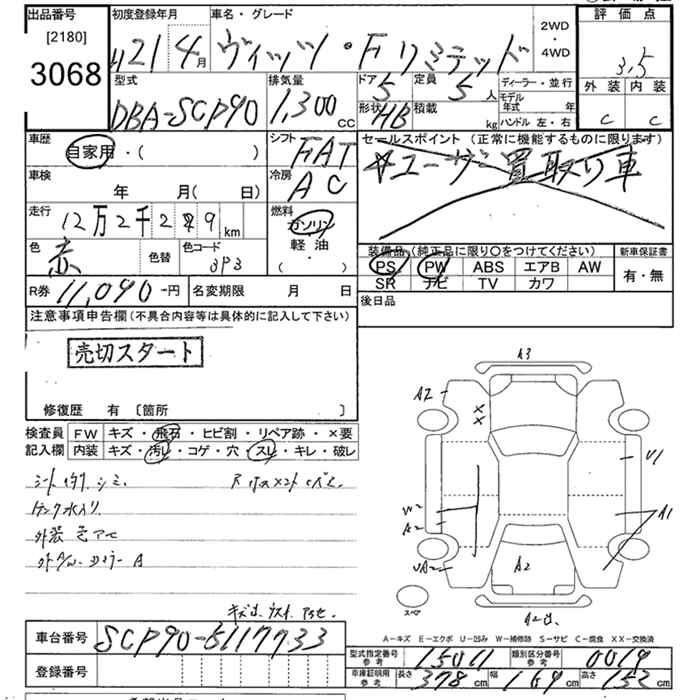 出品番号
[2180]
3068
初度登録年月
H 21 4 月
車名・グレード
ヴィッツ・Fリミテッド
2WD
・
4WD
評価点
3.5
外装 内装
C C
型式
DBA-SCP90
排気量
1,300 CC
ドア
5
定員
5 人
形状
HB
積載
kg
ディーラー・並行
モデル
年式 年
ハンドル 左・右
車歴
自家用・( )
シフト
FAT
冷房
AC
車検
年 月( 日)
走行
12万2千 2 9 km
燃料
ガソリン
軽油
( ・ )
色
赤
色替
色コード
3P3
R券 11,090-円
名変期限 月 日
セールスポイント (正常に機能するものに限ります)
☆ユーザー買取り車
装備品(純正品に限り○をつけてください)
PS PW ABS エアB AW
SR ナビ TV カワ
新車保証書
有・無
後日品
注意事項申告欄(不具合内容等は具体的に記入して下さい)
売切スタート
修復歴 有〔箇所 〕
検査員
記入欄
FW キズ・飛石・ヒビ割・リペア跡・×要
内装 キズ・汚レ・コゲ・穴・スレ・キレ・破レ
シート
シミ
外装
A3
A2
××
U1
W2
A2
A1
UA2
A2
スペア
車台番号 SCP90-5117733
登録番号
A-キズ E-エクボ U-凹み W-補修跡 S-サビ C-腐食 XX-交換済
型式指定番号
参考
15011
類別区分番号
参考
0019
車庫証明用
参考
長さ 378 cm
幅 169 cm
高さ 152 cm